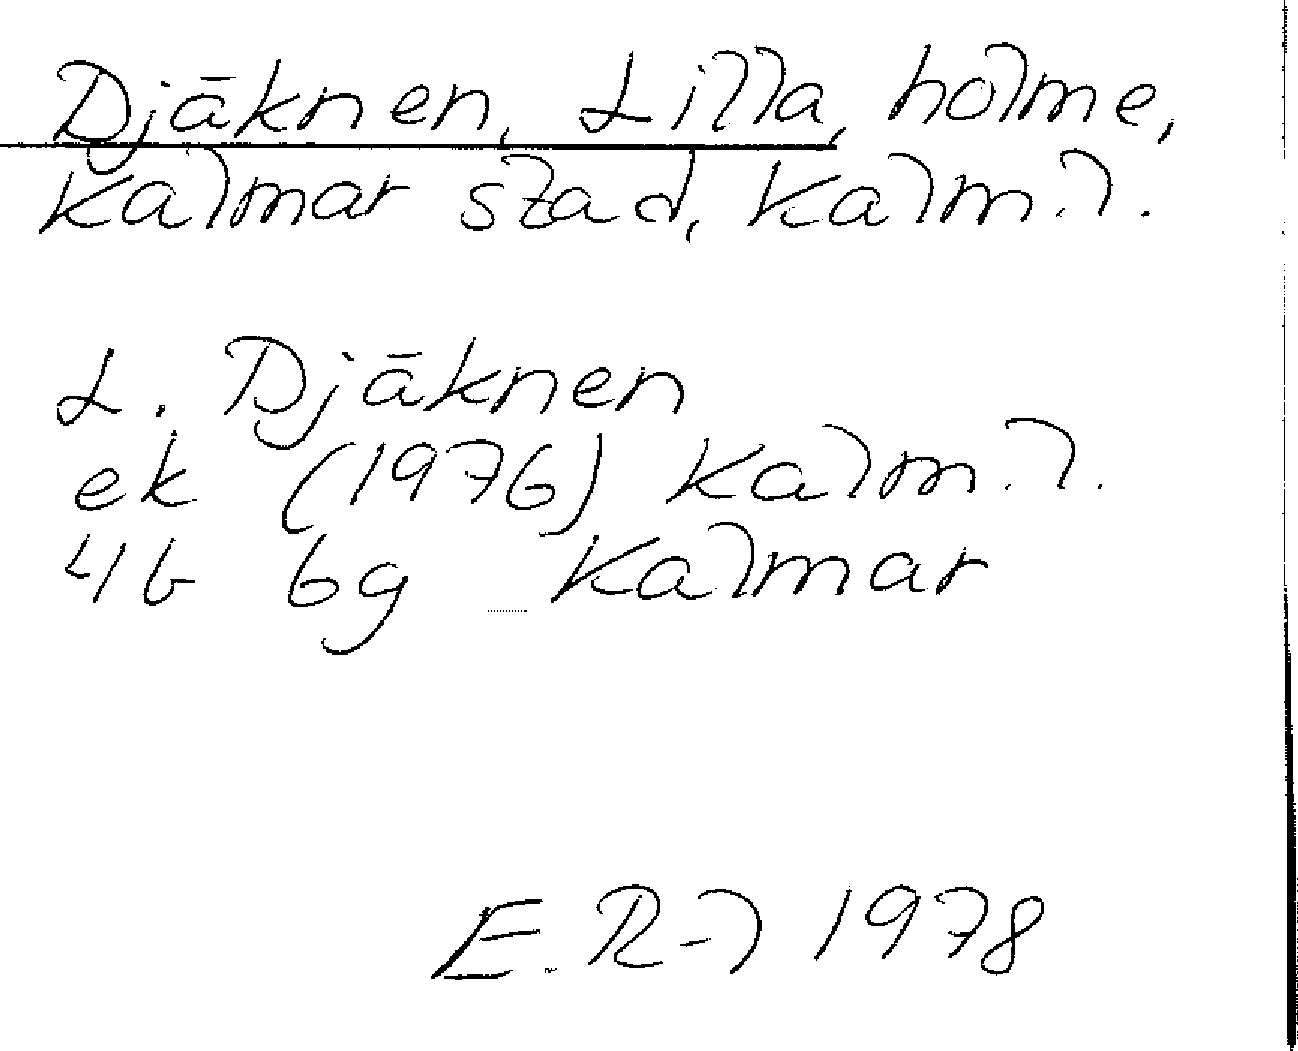 Djäknen, Lilla, holme,
Kalmar stad, Kalm.l.
L. Djäknen
ek (1976) Kalm.l.
4G 6g Kalmar
E. R-l 1978